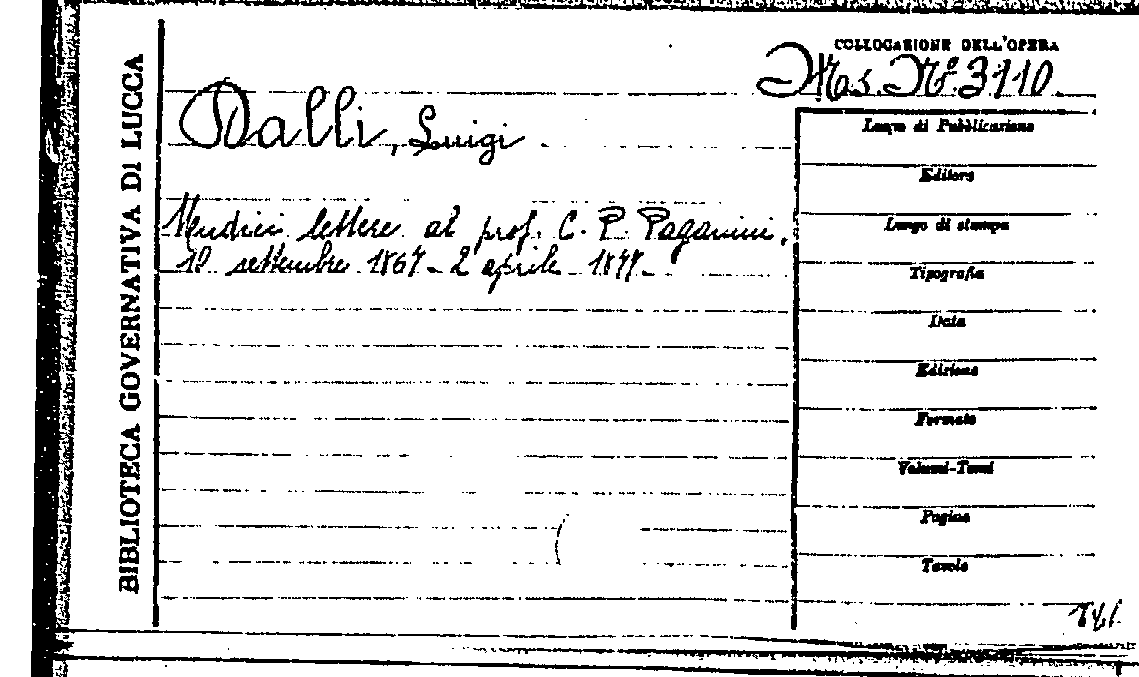 BIBLIOTECA GOVERNATIVA DI LUCCA
COLLOCAZIONE DELL'OPERA
Ms. Nº. 3110
Dalli, Luigi
lettere al prof. C. P. Paganini,
settembre 1867 - 2 aprile 1877.
Luogo di Pubblicazione
Editore
Luogo di stampa
Tipografia
Data
Edizione
Formato
Volumi-Tomi
Pagine
Tavole